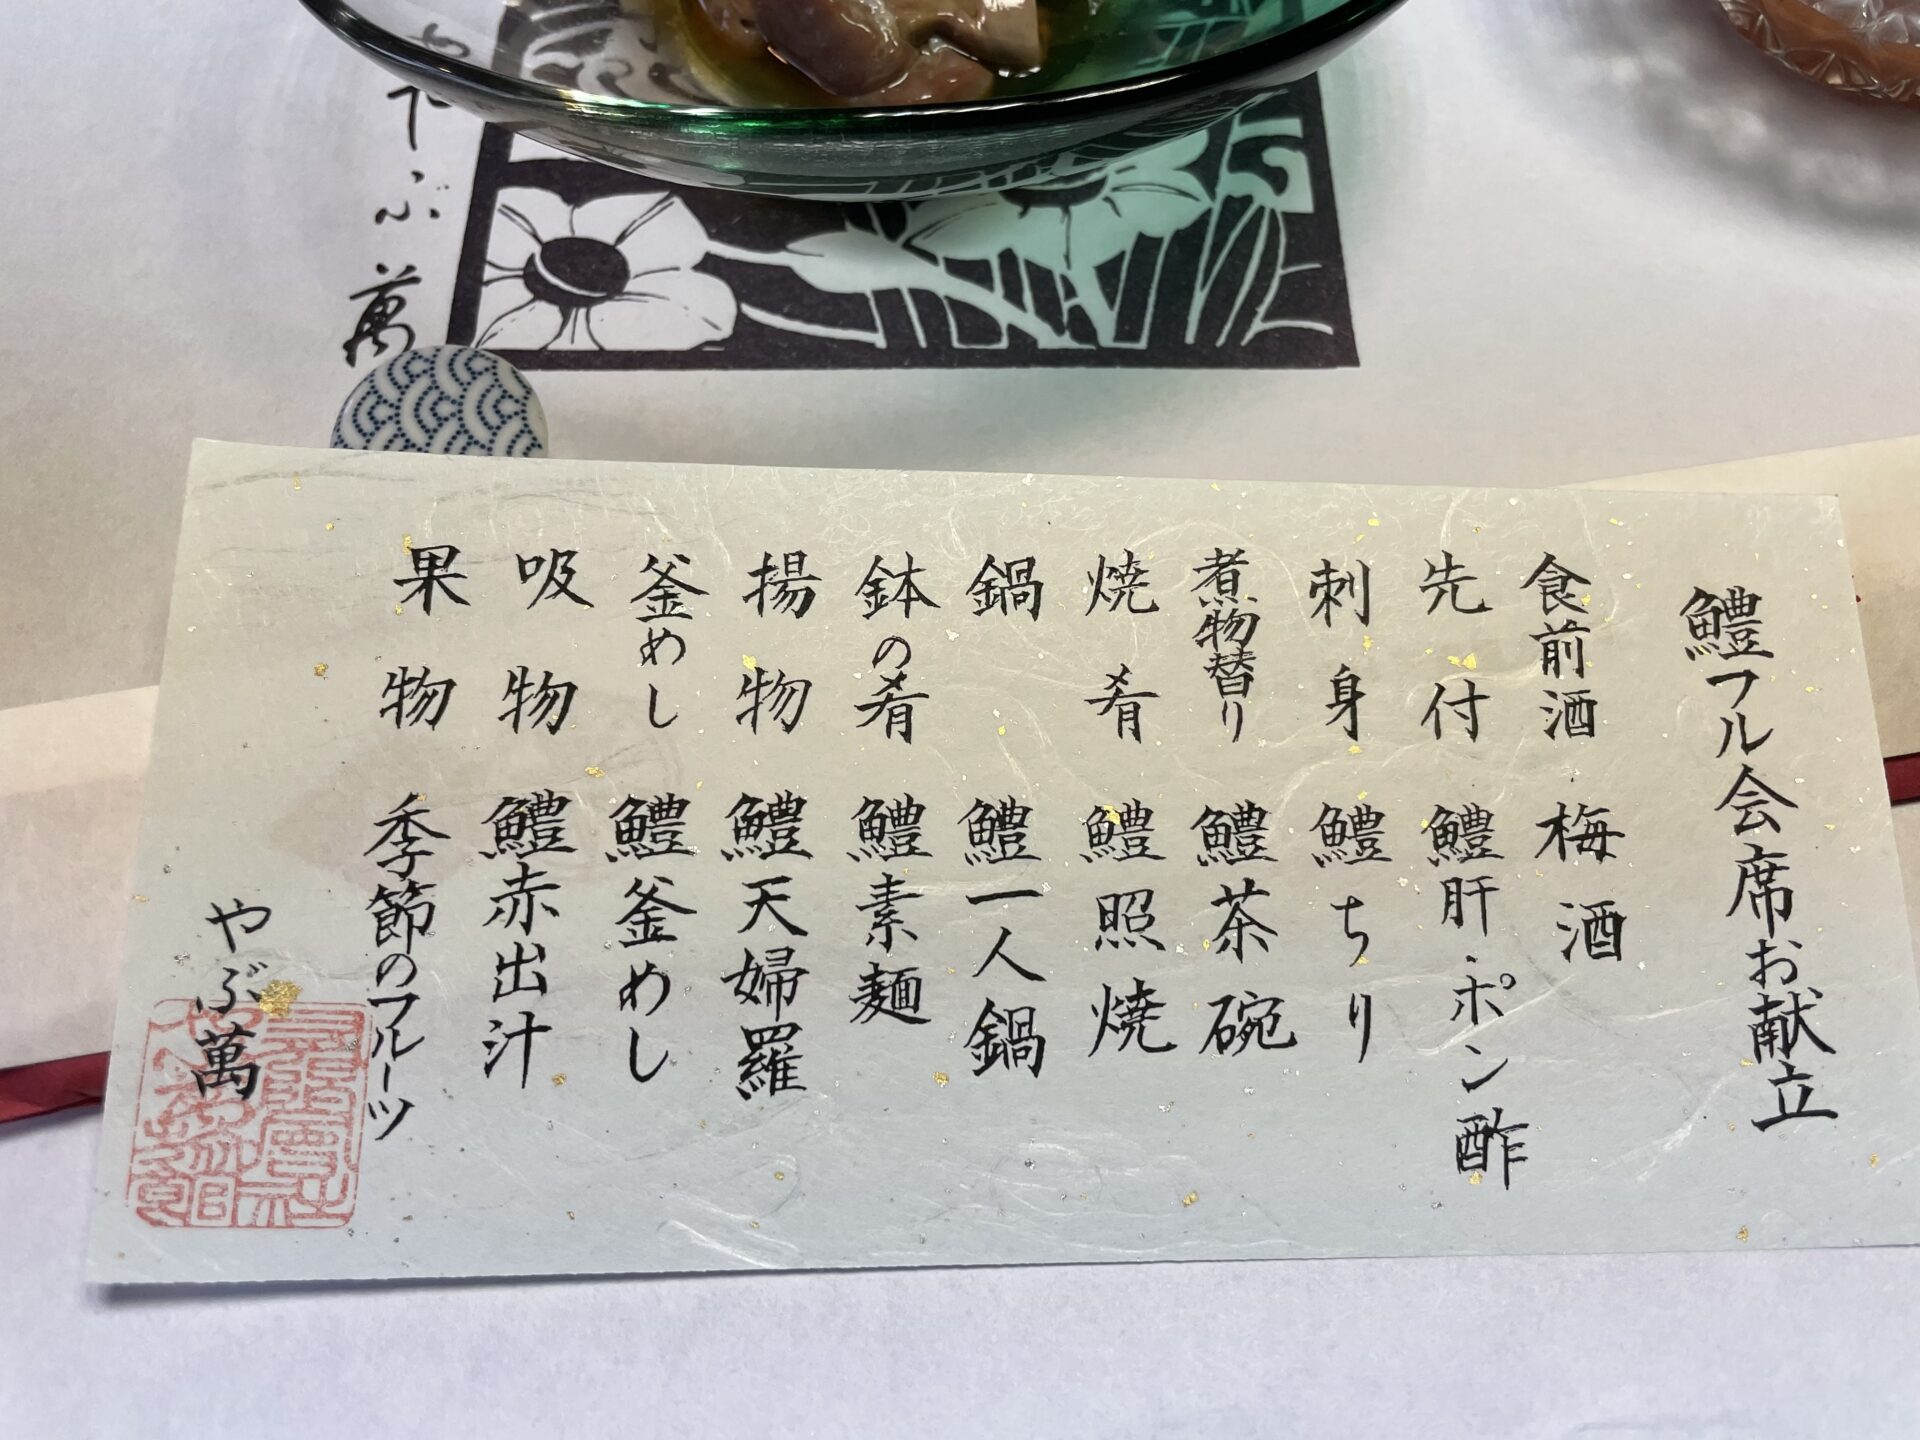 鱧フル会席お献立
食前酒 梅酒
先付 鱧肝・ポン酢
刺身 鱧ちり
煮物替り 鱧茶碗
焼肴 鱧照焼
鍋 鱧一人鍋
鉢の肴 鱧素麺
揚物 鱧天婦羅
釜めし 鱧釜めし
吸物 鱧赤出汁
果物 季節のフルーツ
やぶ萬
やぶ萬